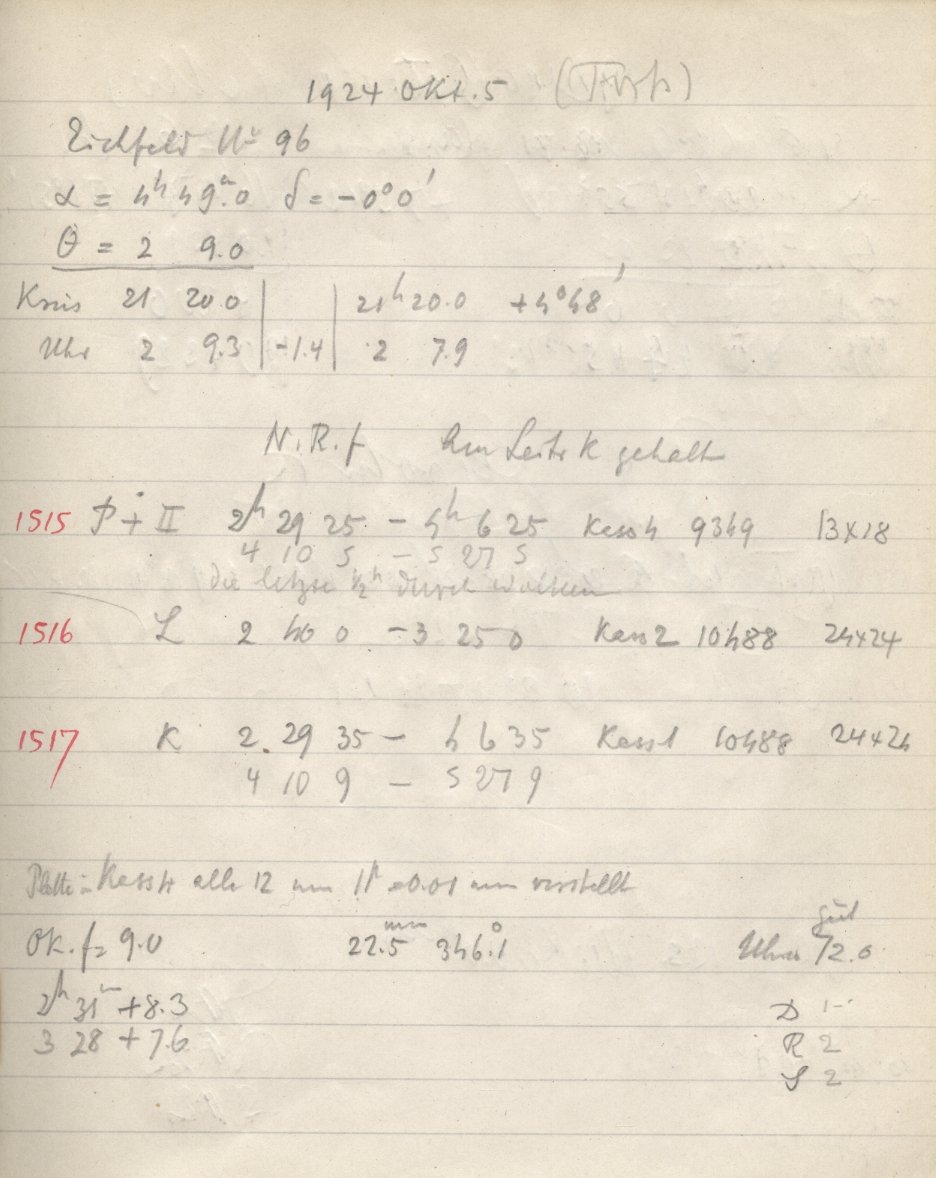 1924 Okt. 5
Eichfeld No 96
α = 4h 49m.0 δ = -0°0'
θ = 2 9.0
Kreis 21 20.0 21h 20.0 +4°48'
Uhr 2 9.3 -1.4 2 7.9
N.R.f Am Leitr K gehalt
1515 P + II 2h 29 25 - 4h 6 25 Kass 4 9349 13x18
4 10 5 - 5 27 5
die letzte ½h durch Wolken
1516 L 2 40 0 - 3 25 0 Kass 2 10488 24x24
1517 K 2 29 35 - 4 6 35 Kass 1 10488 24x24
4 10 9 - 5 27 9
Platte in Kass 4 alle 12 um 1p = 0.01 mm verstellt
gut
Ok. f = 9.0 22.5 mm 346°.1 Uhr 72.0
2h 31m +8.3 D 1-
3 28 + 7.6 R 2
S 2